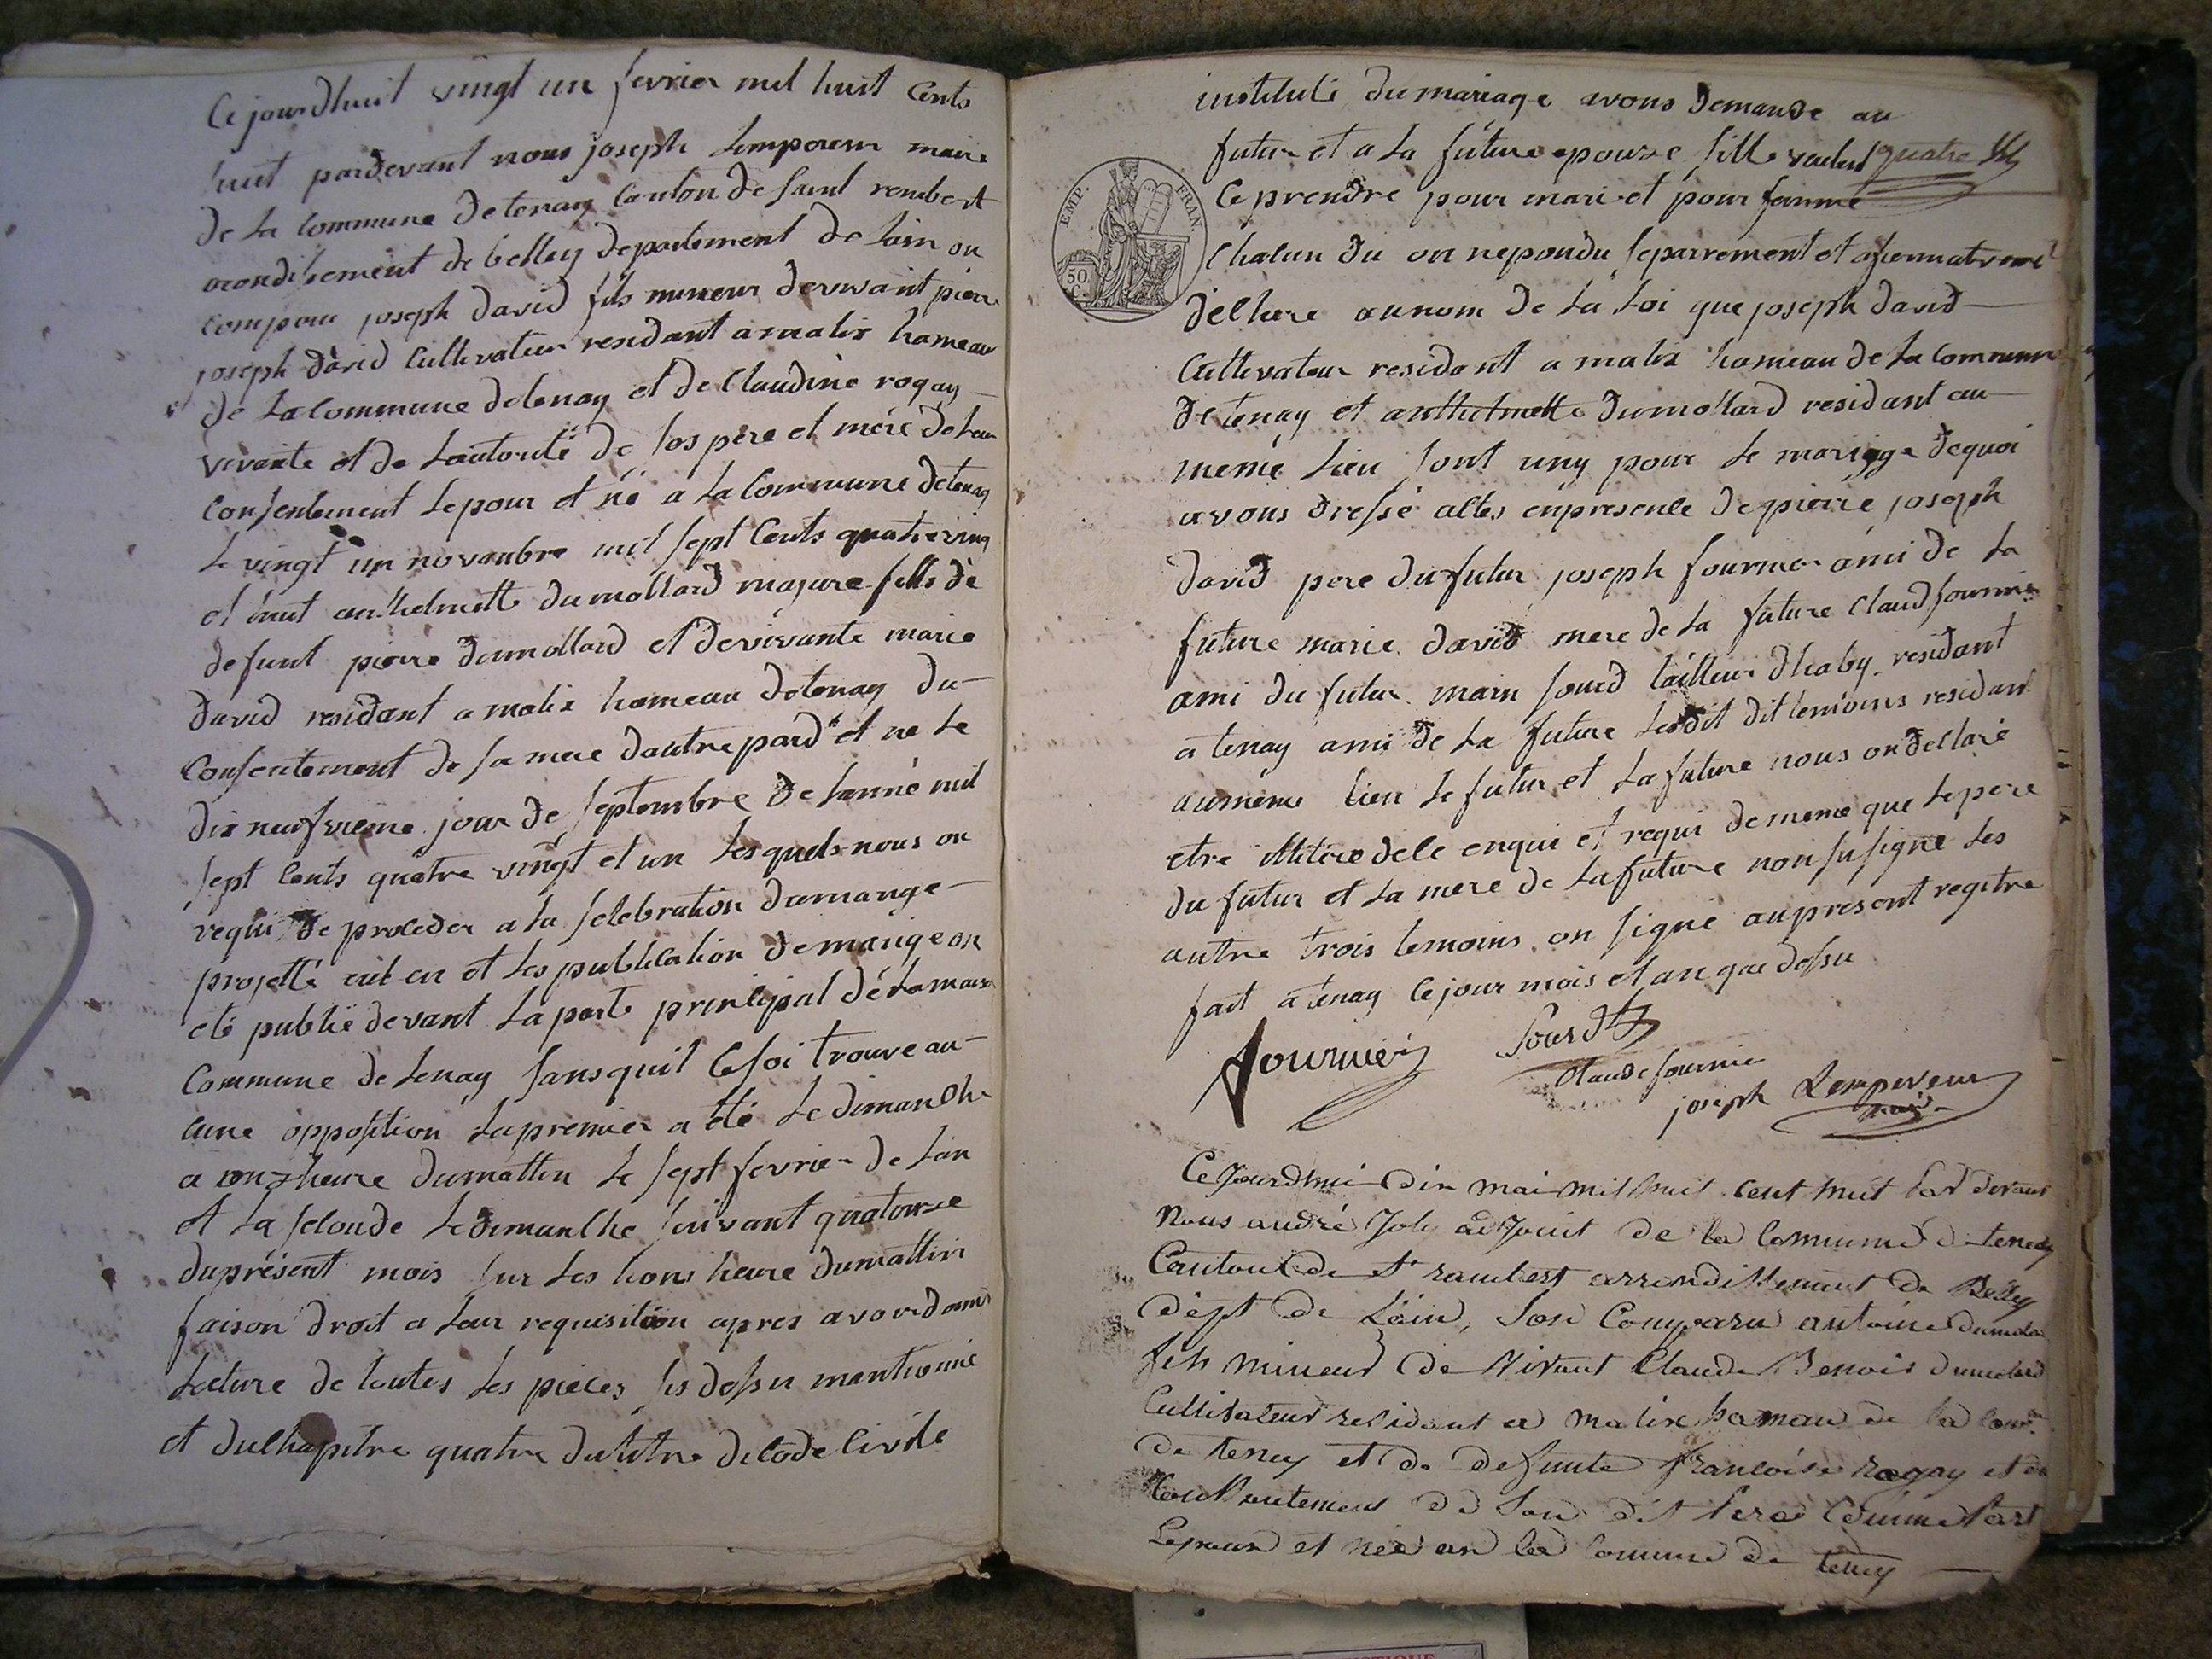 Ce jourdhuit vingt un fevrier mil huit Cents
huit pardevant nous joseph Lempereur maire
de La Commune de tenay Canton de Saint rembert
arondisement de belley departement de Lain on
comparu joseph david fils mineur de vivant pierre
joseph david Cultivateur residant a malix hameau
de La Commune de tenay et de Claudine rogay
vivante et de Lautorité de ses pere et mere de Leur
Consentement Lepour et né a La Commune de tenay
Le vingt un novembre mil sept Cents quatrevingt
et huit anthelmette dumollard majure fille de
defunt pierre dumollard et de vivante marie
david residant a malix hameau de tenay du
Consentement de sa mere dautre pard et né Le
dix neufvieme jour de septembre de Lanné mil
sept Cents quatre vingt et un Lesquels nous on
requi de proceder a La selebration du mariage
projetté entr eu et Les publication de mariage on
eté publié devant La porte principal de La maison
Commune de tenay sans quil Ce soi trouve au
cune opposition La premier a été Le dimanche
a onze heure du mattin Le sept fevrier de Lan
et La seconde Le dimanche suivant quatorze
du présent mois sur Les honz heure du mattin
faison droit a Leur requisition apres avoir donné
Lecture de toutes Les pieces sis dessu mantionné
et du Chapitre quatre du titre du Code Civile
institulé du mariage avons demande au
futur et a La future epouse sille veulent quatre
Ce prendre pour mari et pour femme
EMP. FRAN.
50 C.
Chacun du on repondu separrement et afirmativement
déclare au nom de La Loi que joseph david
Cultivateur residant a malix hameau de La Commune
de tenay et anthelmette dumollard residant au
meme Lieu sont uny pour Le mariage de quoi
avons dressé actes en presence de pierre joseph
david pere du futur joseph fournier ami de La
future marie david mere de La future Claud fournier
ami du futur marin sourd tailleur dhaby residant
a tenay ami de La future Lesdit dit temoins residant
au meme Lieu Le futur et La future nous on declaré
etre illitere de ce enqui et requi de meme que Le pere
du futur et La mere de La future non su signe Les
autre trois temoins on signé au present regitre
fait a tenay Ce jour mois et an que dessu
fournier Sourd
Claude fournier
joseph Lempereur
maire
Ce Jourdhui dix mai mil huit cent huit Par devant
Nous andré Joly adjoint de la Commune de tenay
Canton de St rambert arrondissement de Belley
dépt de Lain, Son Comparu antoine dumolard
fils mineur de Vivant Claude Benois dumolard
Cultivateur residant a malix hamau de la Comne
de teney et de defunte françoise rogay et du
Consentement de Son dit Pere Comme Part
Lepoux et née an la Commune de teney